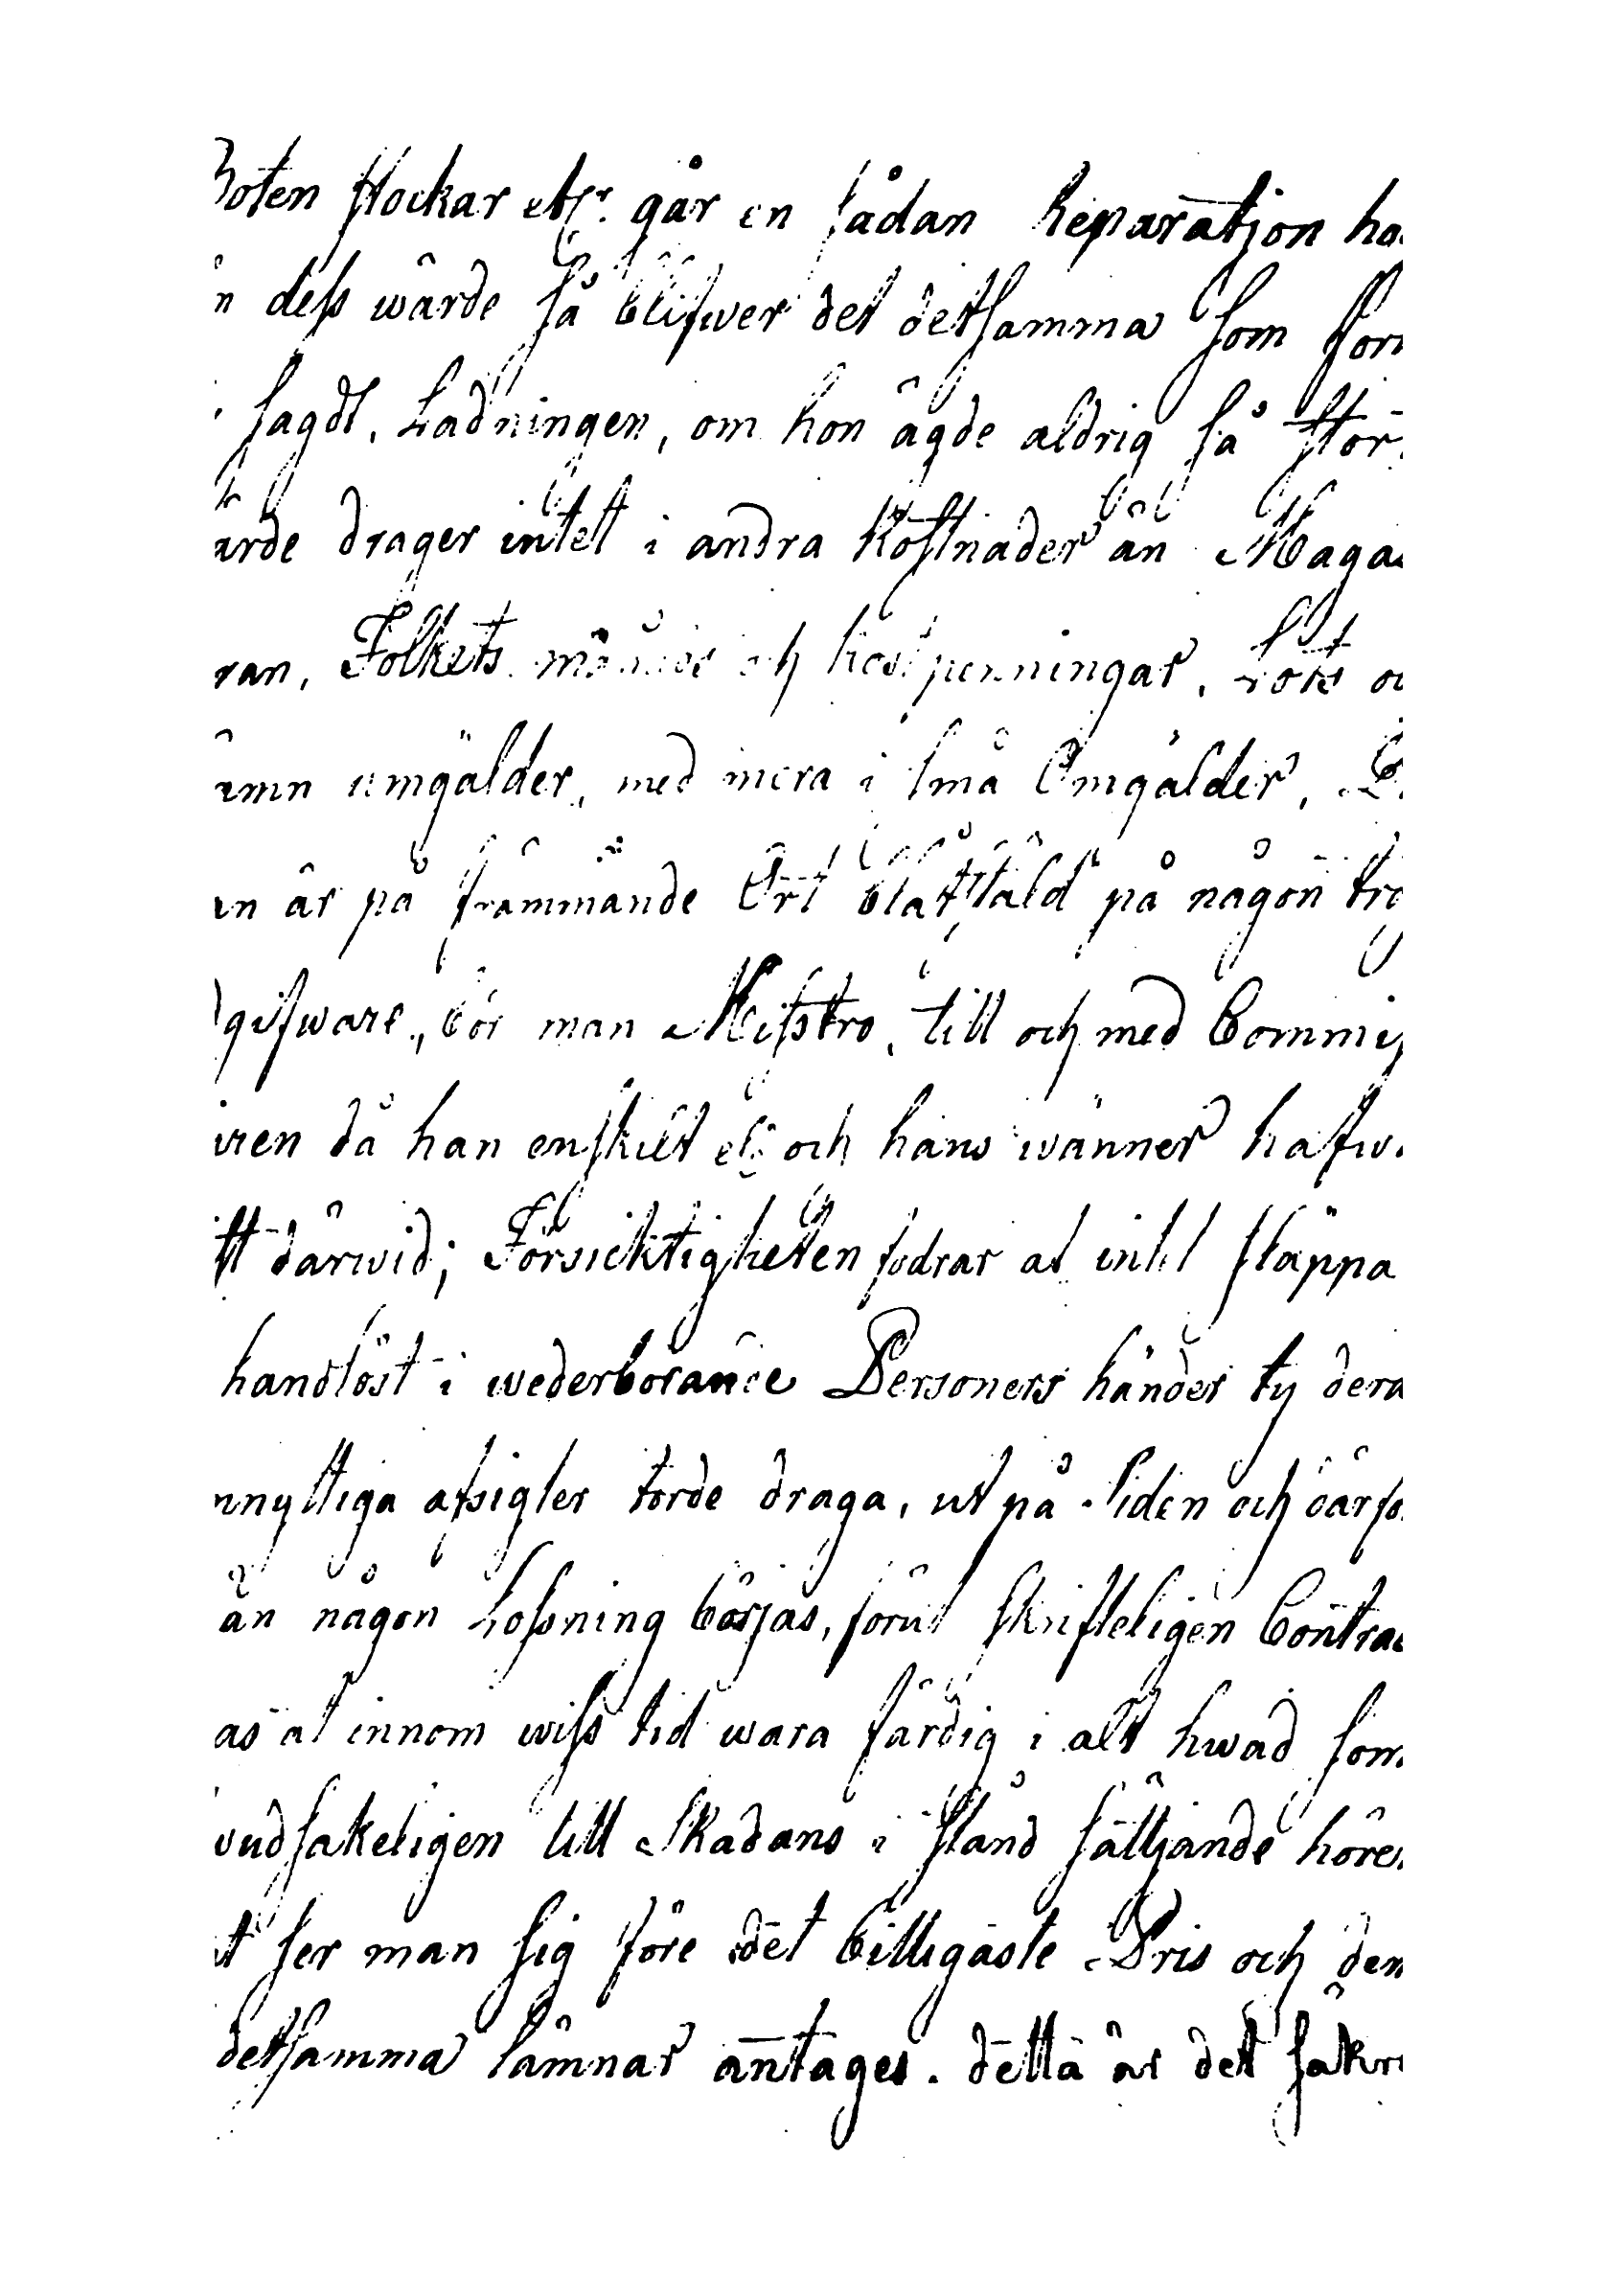 Boten stockar etc: går en sådan Reparation ho
n dess wärde så blifwer det detsamma som for
sagdt. Ladningen, om hon ägde aldrig så stor
ärde drager intet i andra Kostnader än Maga
ran, Folkets och kostpenningar. Lots oc
amn umgälder, med mera i små Omgälder,
en är på främmande Ort blåtstäld på någon tro
dgifware, bör man Misstro, till och med Commis
iren då han enskilt och hans wänner hafw
itt därwid; Försicktigheten fodrar at intet släppa
handlöst i wederbörande Personers händer ty dera
nnyttiga afsigter torde draga, ut på Tiden och därfö
än någon Lossning börjas, förut skrifteligen Contrac
as at innom wiss tid wara färdig i alt hwad som
vudsakeligen till Skadans i stånd sättjande hörer
t ser man sig före det billigaste Pris och den
detsamma lämnar antages. detta är det säkr